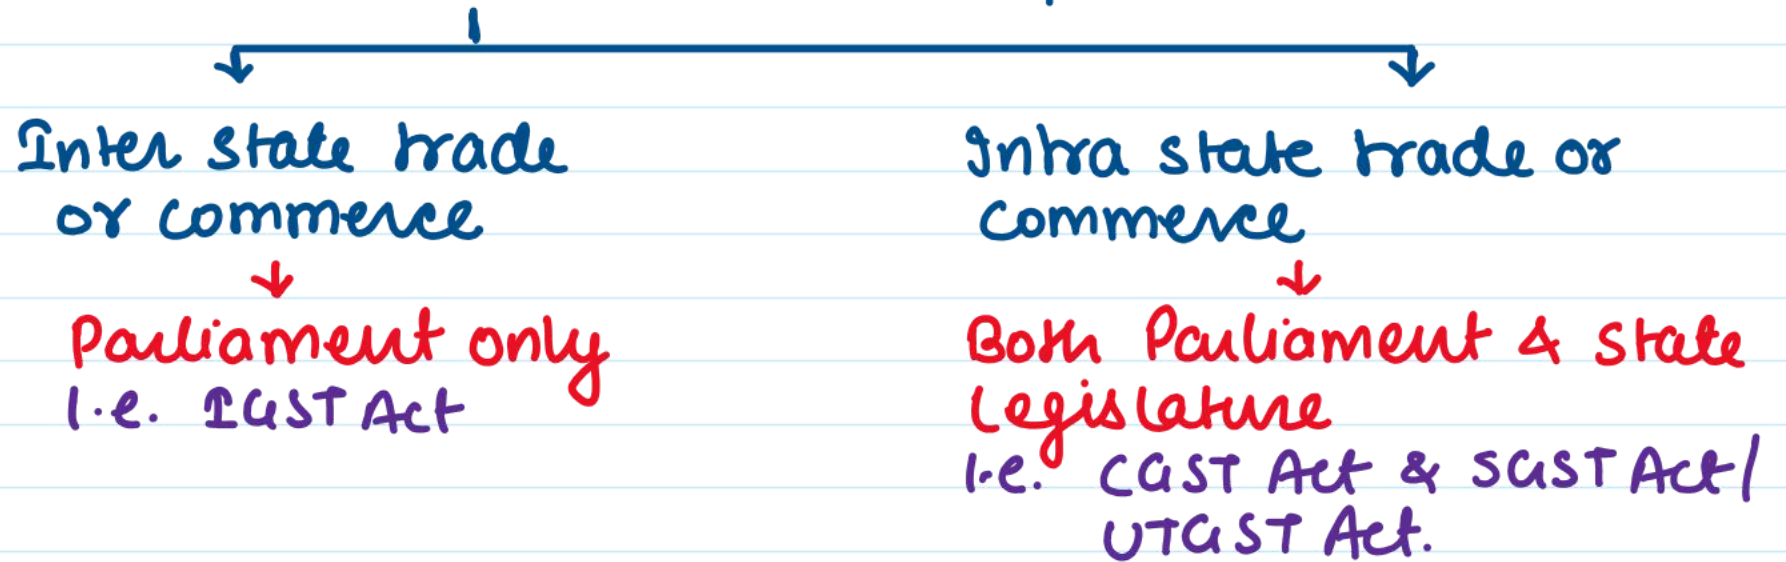 Inter state trade
or commerce
Parliament only
I.e. IGST Act
Intra state trade or
commerce
Both Parliament & State
Legislature
I.e. CGST Act & SGST Act/
UTGST Act.